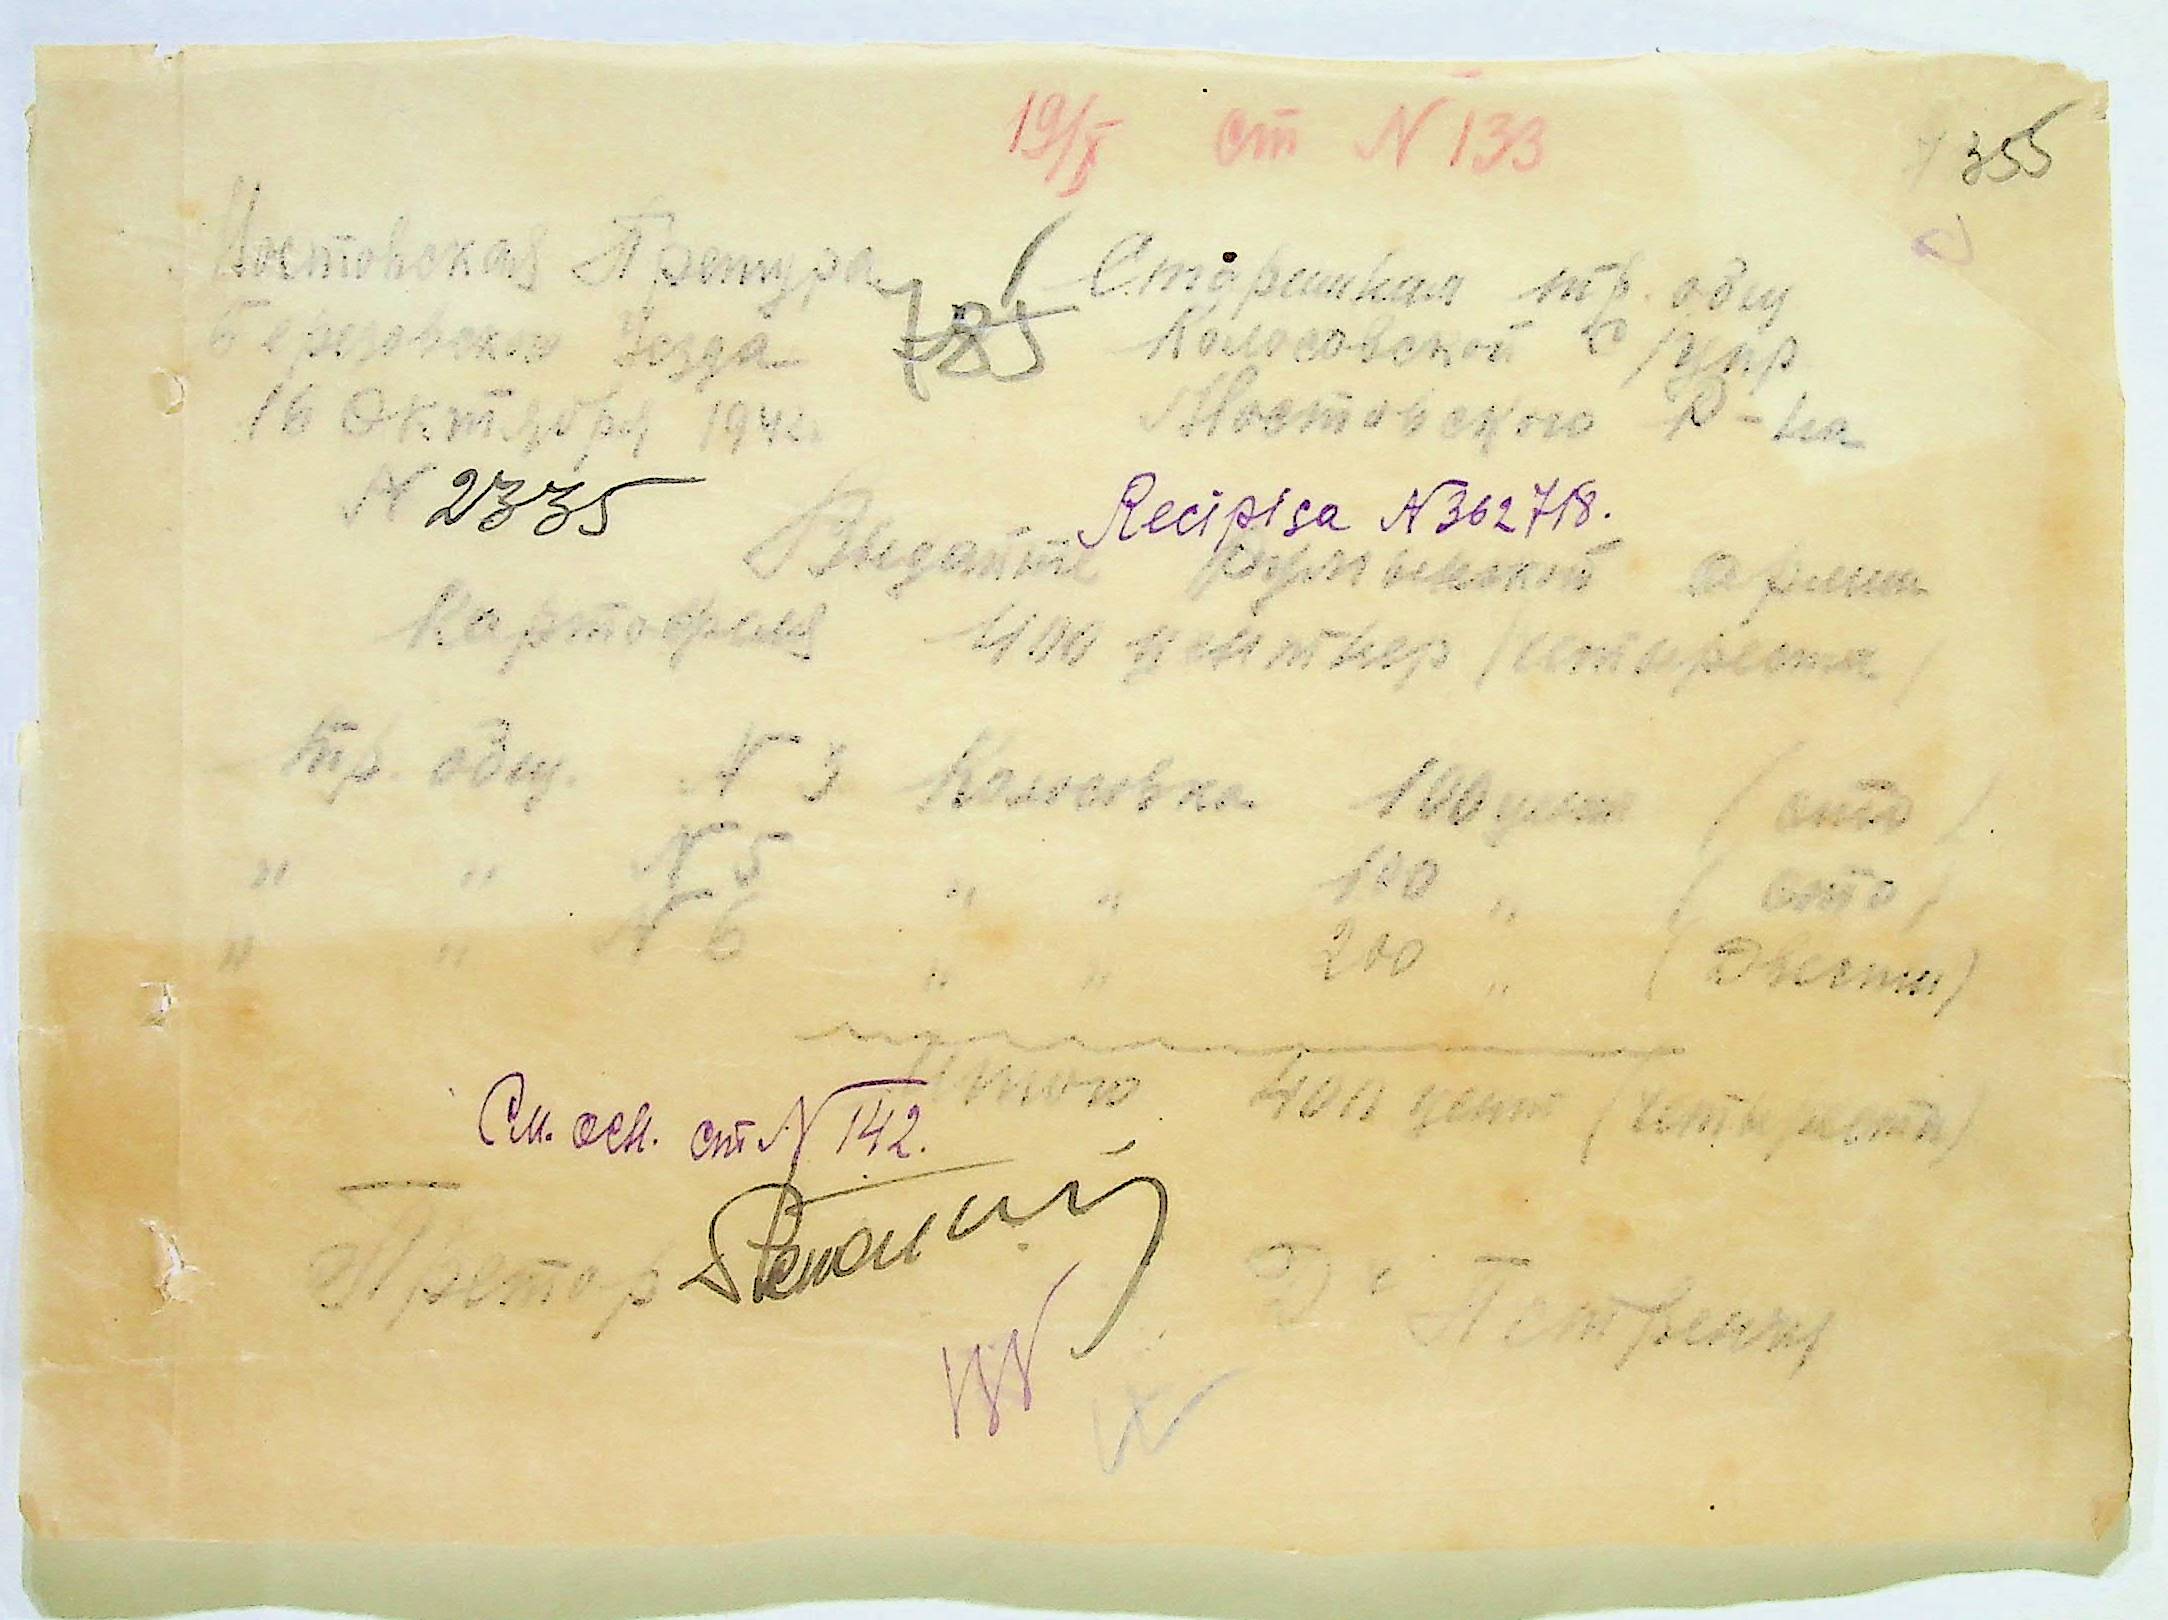 19/X ст N 133
355
Мостовская Претура
Березовского Уезда
16 Октября 1942г.
N 2335
785
Старшинам тр. общ
Колосовской С/упр
Мостовского Р-на
Recipisa N 362718.
Выдайте Румынской армии
Картофеля 400 центнер /четыреста/
Тр. общ. N 3 Колосовка 100 цент (сто)
" " N 5 " " 100 " (сто)
" " N 6 " " 200 " (Двести)
Итого 400 цент (Четыреста)
См. осн. ст N 142.
Претор